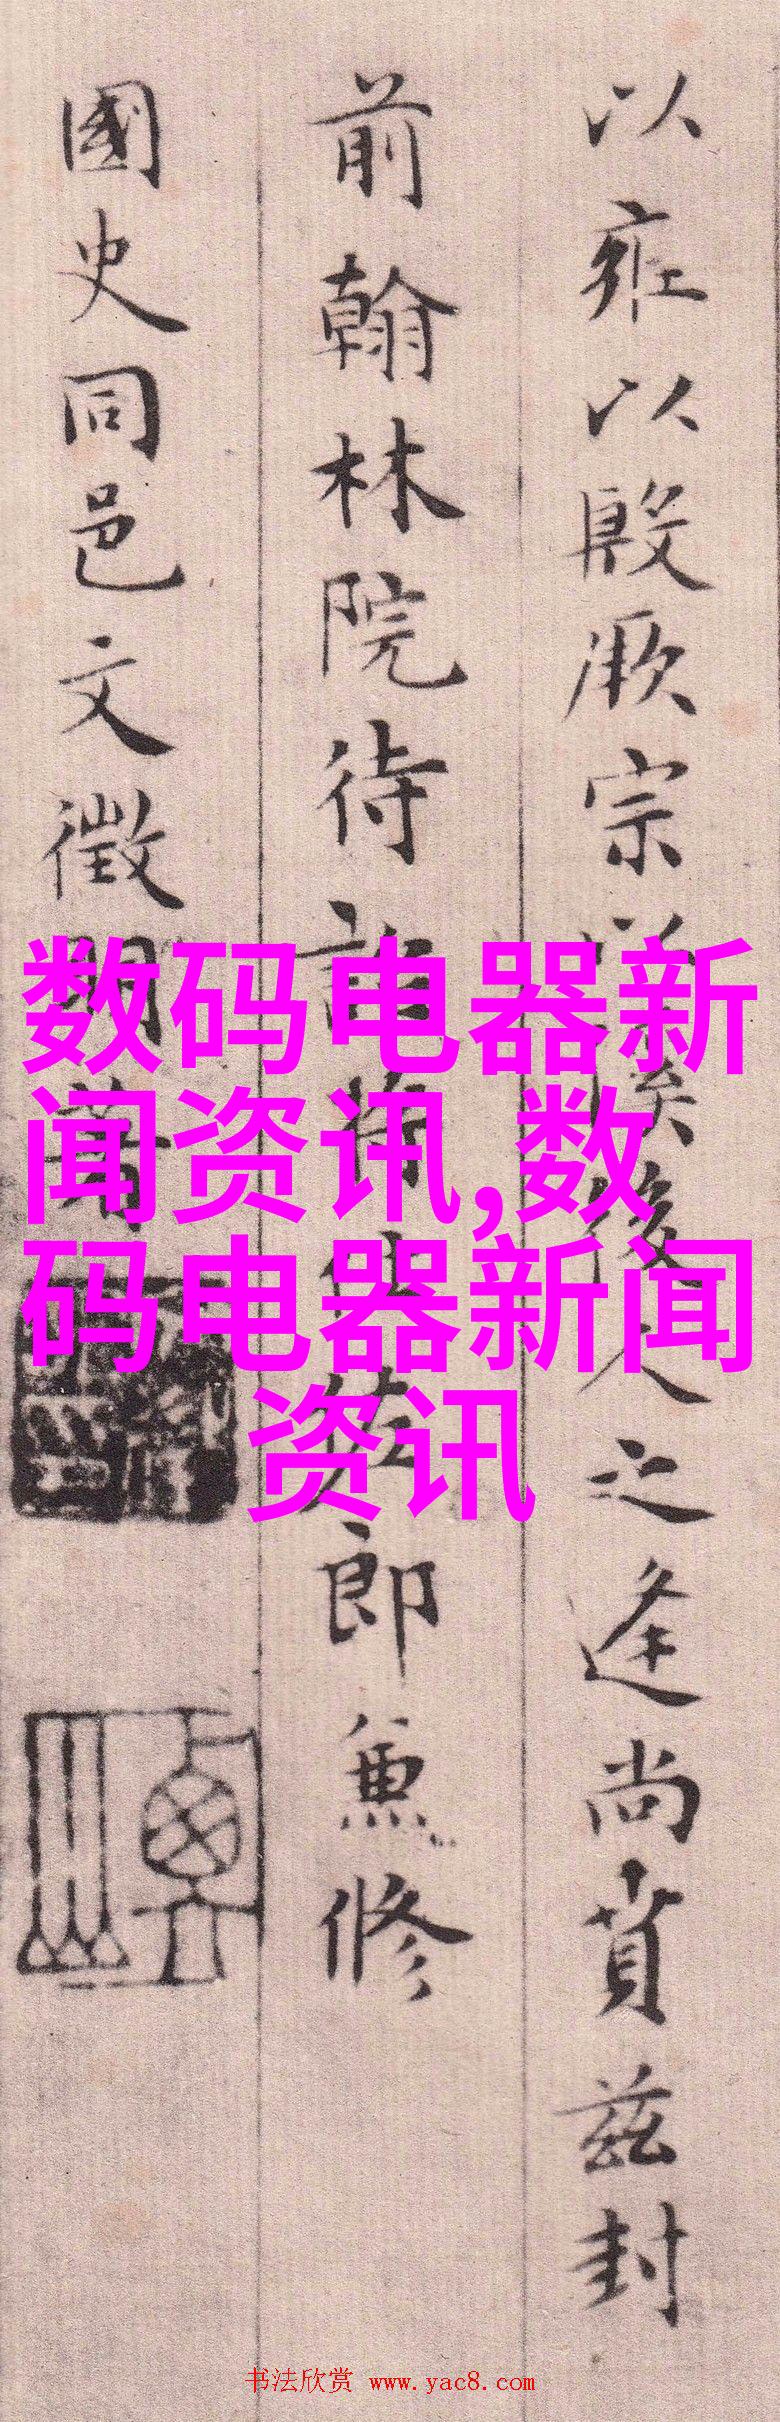 以雍以殷厥宗以
後人之逢尚賁茲封
前翰林院待詔將仕佐郎兼修
國史同邑文徵明書
数码电器新
闻资讯,数
码电器新闻
资讯
书法欣赏 www.yac8.com